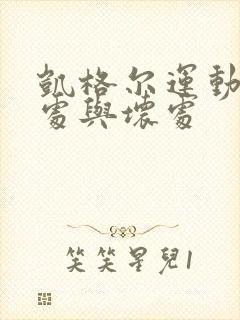 凱格尔運動
處與壞處
笑笑星兒1